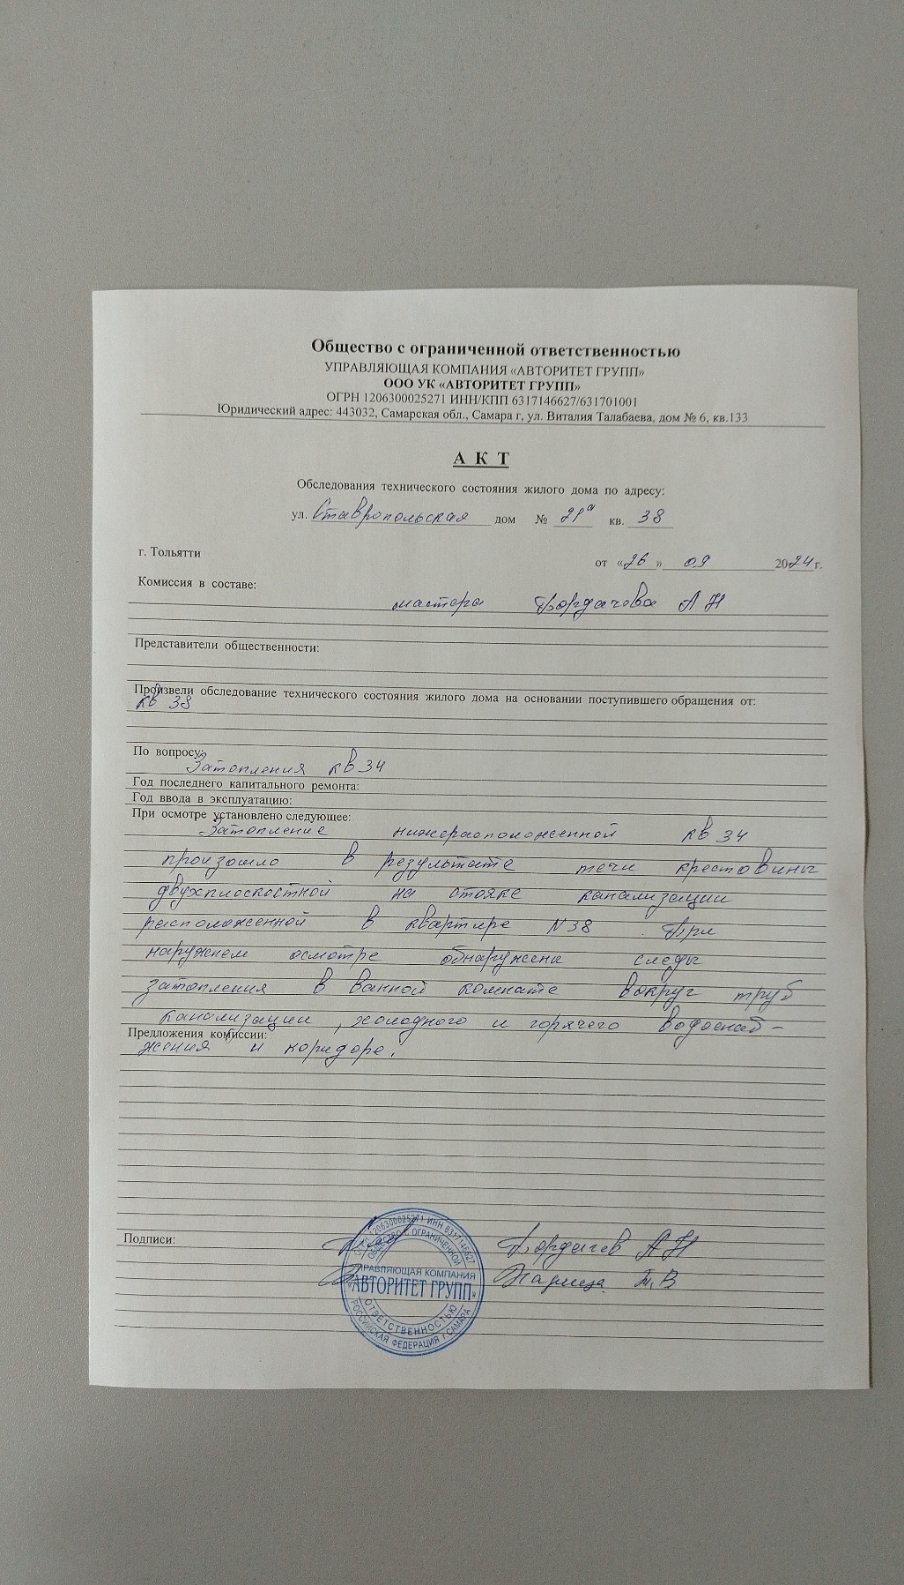 Общество с ограниченной ответственностью
УПРАВЛЯЮЩАЯ КОМПАНИЯ «АВТОРИТЕТ ГРУПП»
ООО УК «АВТОРИТЕТ ГРУПП»
ОГРН 1206300025271 ИНН/КПП 6317146627/631701001
Юридический адрес: 443032, Самарская обл., Самара г, ул. Виталия Талабаева, дом № 6, кв.133
А К Т
Обследования технического состояния жилого дома по адресу:
ул. Ставропольская дом № 21а кв. 38
г. Тольятти
от «26» 09 2024 г.
Комиссия в составе:
мастера Бордачева А Н
Представители общественности:
Произвели обследование технического состояния жилого дома на основании поступившего обращения от:
кв 38
По вопросу:
Затопления кв 34
Год последнего капитального ремонта:
Год ввода в эксплуатацию:
При осмотре установлено следующее:
Затопление нижерасположенной кв 34
произошло в результате течи крестовины
двухплоскостной на стояке канализации
расположенной в квартире N 38. При
наружнем осмотре обнаружена следы
затопления в ванной комнате вокруг труб
канализации, холодного и горячего водоснаб-
Предложения комиссии:
жения и коридоре.
Подписи:
Бордачев А Н
Т.В
ОГРН 1206300025271 ИНН 6317146627
ОБЩЕСТВО С ОГРАНИЧЕННОЙ
УПРАВЛЯЮЩАЯ КОМПАНИЯ
«АВТОРИТЕТ ГРУПП»
ОТВЕТСТВЕННОСТЬЮ
РОССИЙСКАЯ ФЕДЕРАЦИЯ Г.САМАРА